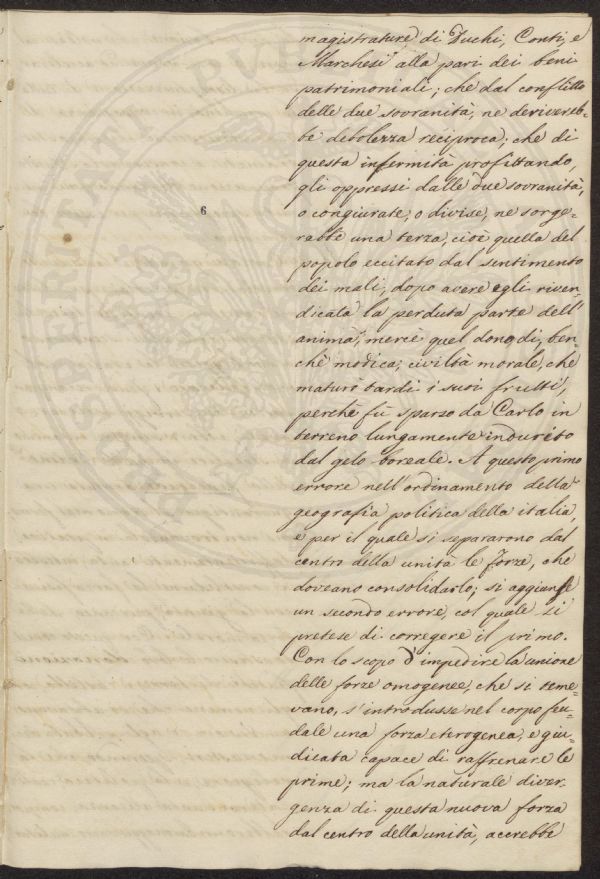 magistrature di Duchi, Conti, e
Marchesi alla pari dei beni
patrimoniali; che dal conflitto
delle due sovranità, ne derivereb-
be debolezza reciproca; che di
questa infermità profittando,
gli oppressi dalle due sovranità,
6
o congiurate, o divise, ne sorge-
rebbe una terza, cioè quella del
popolo eccitato dal sentimento
dei mali, dopo avere egli riven-
dicata la perduta parte dell'
anima, mercè quel dono, di, ben-
chè modica, civiltà morale, che
maturò tardi i suoi frutti,
perchè fù sparso da Carlo in
terreno lungamente indurito
dal gelo boreale. A questo primo
errore nell'ordinamento della
geografia politica della italia,
e per il quale si separarono dal
centro della unità le forze, che
doveano consolidarlo; si aggiunse
un secondo errore, col quale si
pretese di corregere il primo.
Con lo scopo d'impedire la unione
delle forze omogenee, che si teme-
vano, s'introdusse nel corpo feu-
dale una forza eterogenea, e giu-
dicata capace di raffrenare le
prime; ma la naturale diver-
genza di questa nuova forza
dal centro della unità, accrebbe
PVBLICAE
VERITATI